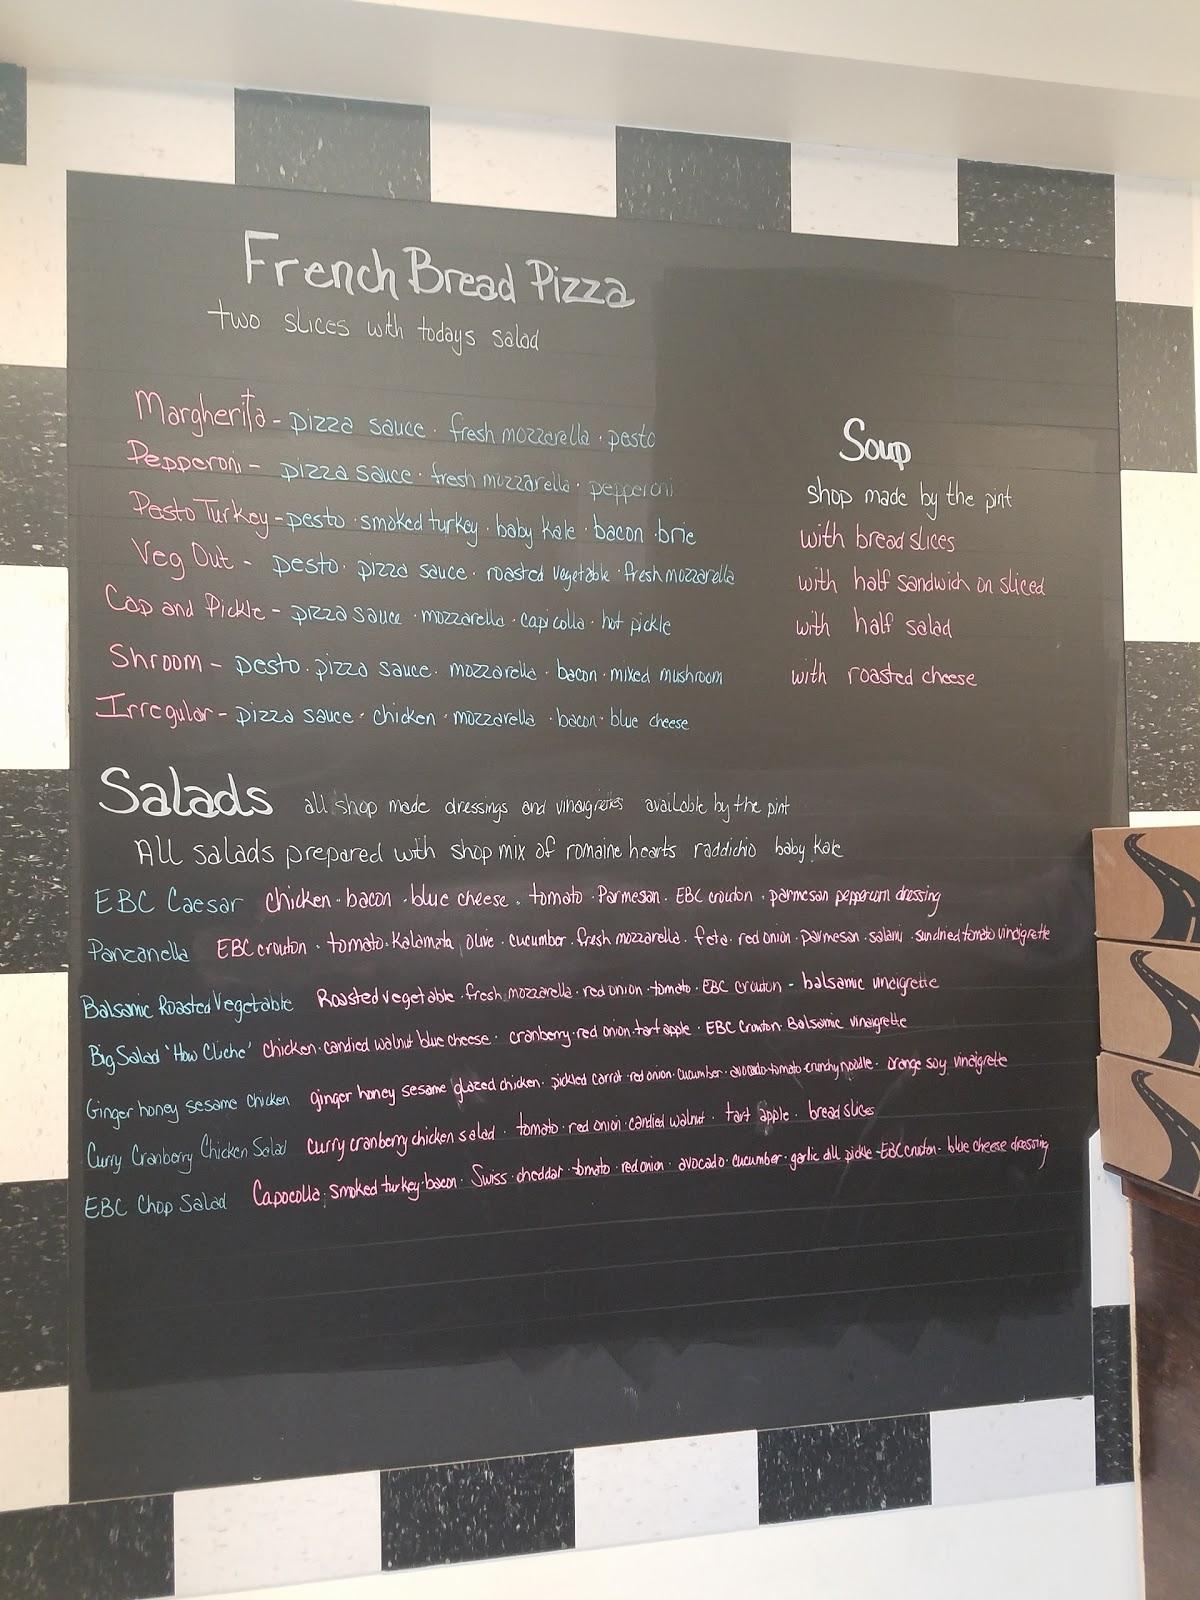 French Bread Pizza
two slices with todays salad
Margherita - pizza sauce · fresh mozzarella · pesto
Pepperoni - pizza sauce · fresh mozzarella · pepperoni
Pesto Turkey - pesto · smoked turkey · baby kale · bacon · brie
Veg Out - pesto · pizza sauce · roasted vegetable · fresh mozzarella
Cap and Pickle - pizza sauce · mozzarella · capicolla · hot pickle
Shroom - pesto · pizza sauce · mozzarella · bacon · mixed mushroom
Irregular - pizza sauce · chicken · mozzarella · bacon · blue cheese
Soup
shop made by the pint
with bread slices
with half sandwich on sliced
with half salad
with roasted cheese
Salads all shop made dressings and vinaigrettes available by the pint
All salads prepared with shop mix of romaine hearts raddichio baby kale
EBC Caesar chicken · bacon · blue cheese · tomato · Parmesan · EBC crouton · parmesan peppercorn dressing
Panzanella EBC crouton · tomato · Kalamata olive · cucumber · fresh mozzarella · feta · red onion · parmesan · salami · sundried tomato vinaigrette
Balsamic Roasted Vegetable Roasted vegetable · fresh mozzarella · red onion · tomato · EBC crouton - balsamic vinaigrette
Big Salad 'How Cliche' chicken · candied walnut blue cheese · cranberry · red onion · tart apple · EBC Crouton · Balsamic vinaigrette
Ginger honey sesame chicken ginger honey sesame glazed chicken · pickled carrot · red onion · cucumber · avocado · tomato · crunchy noodle · orange soy vinaigrette
Curry Cranberry Chicken Salad curry cranberry chicken salad · tomato · red onion · candied walnut · tart apple · bread slices
EBC Chop Salad Capocolla · smoked turkey · bacon · Swiss · cheddar · tomato · red onion · avocado · cucumber · garlic dill pickle - EBC crouton - blue cheese dressing